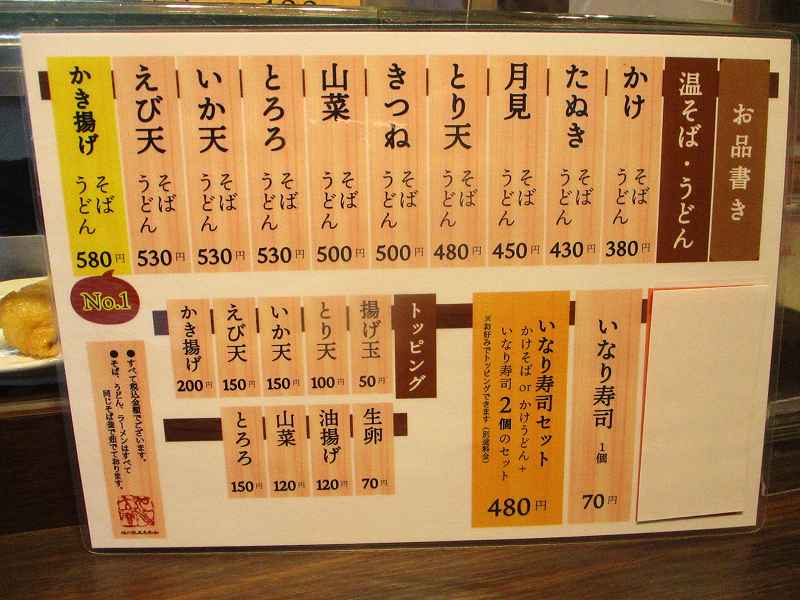 お品書き
温そば・うどん
かけ
そば
うどん
380円
たぬき
そば
うどん
430円
月見
そば
うどん
450円
とり天
そば
うどん
480円
きつね
そば
うどん
500円
山菜
そば
うどん
500円
とろろ
そば
うどん
530円
いか天
そば
うどん
530円
えび天
そば
うどん
530円
かき揚げ
そば
うどん
580円
No.1
いなり寿司 1個
70円
いなり寿司セット
かけそば or かけうどん+
いなり寿司 2個のセット
※お好みでトッピングできます(別途料金)
480円
トッピング
揚げ玉
50円
とり天
100円
いか天
150円
えび天
150円
かき揚げ
200円
生卵
70円
油揚げ
120円
山菜
120円
とろろ
150円
●すべて税込金額でございます。
●そば、うどん、ラーメンはすべて
同じそば釜で茹でております。